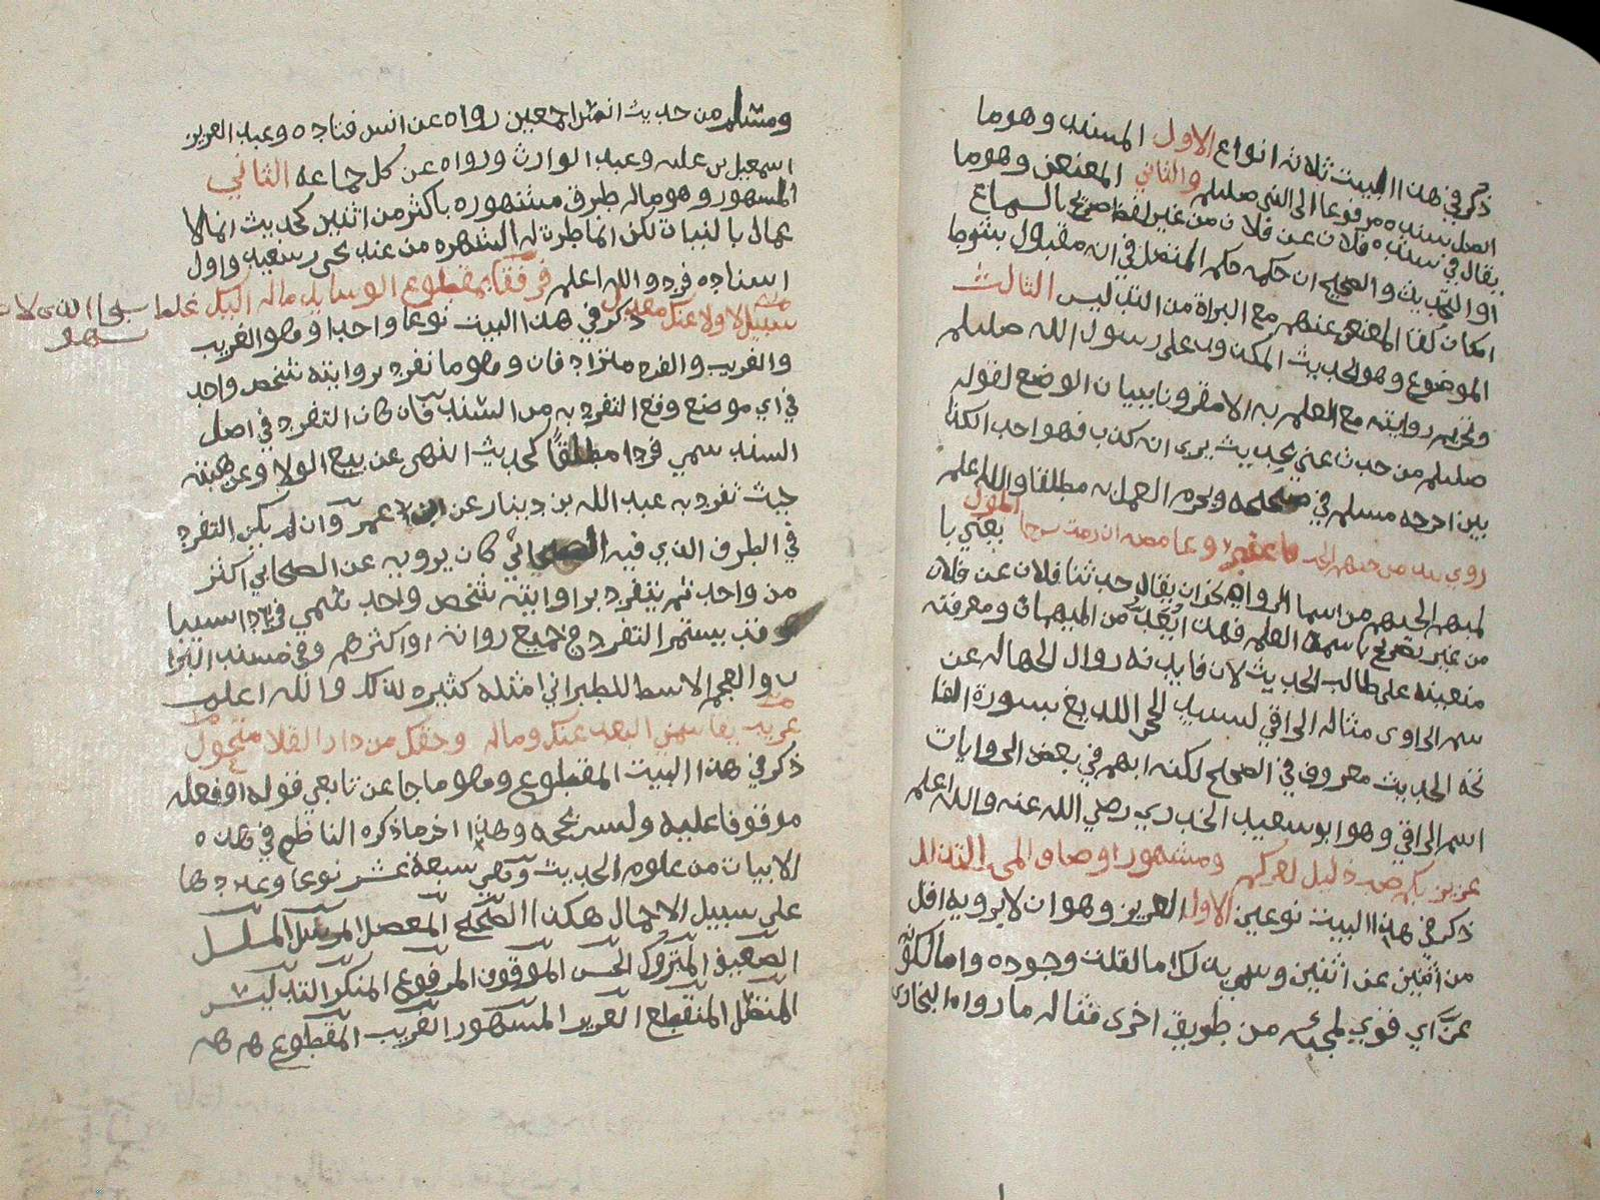 ذكر في هذا البيت ثلاثة انواع الاول المسند وهو ما
اتصل سنده مرفوعا الى النبي صلىلم والثاني المعنعن وهو ما
يقال في سنده فلان عن فلان من غير لفظ صريح بالسماع
او التحديث والصحيح ان حكمه حكم المتصل في انه مقبول بشرط
امكان لقا المعنعن عنهم مع البراة من التدليس الثالث
الموضوع وهو الحديث المكذوب على رسول الله صلىلم
وتحرم روايته مع العلم به الا مقرونا ببيان الوضع لقوله
صلىلم من حدث عني بحديث يرى انه كذب فهو احد الكذا
بين اخرجه مسلم في صحيحه ويحرم العمل به مطلقا والله اعلم
يعني با
لمبهم الحديث من اسما الرواة كان يقال حدثنا فلان عن فلان
من غير تصريح باسمه العلم فهذا يعد من المبهمات ومعرفته
متعينة على طالب الحديث لان فايدته زوال الجهالة عن
اسم الراوي مثاله الراقي لسيد الحي اللديغ بسورة الفا
تحة الحديث معروف في الصحيح لكنه ابهم في بعض الروايات
اسم الراقي وهو ابو سعيد الخدري رضي الله عنه والله اعلم
عزيز بكم صب ذليل لعزكم ومشهور اوصاف المحب التذلل
ذكر في هذا البيت نوعين الاول العزيز وهو ان لا يرويه اقل
من اثنين عن اثنين وسمي بذلك اما لقلة وجوده واما لكونه
عز اي قوي لمجيئه من طريق اخرى فمثاله ما رواه البخاري
ومسلم من حديث انس اجمعين رواه عن انس قتاده وعبد العزيز
اسمعيل بن عليه وعبد الوارث ورواه عن كل جماعه الثاني
المشهور وهو ماله طرق مشهوره باكثر من اثنين كحديث انما الا
عمال بالنيات لكن انما طرت له الشهره من عند يحيى بن سعيد واول
اسناده فرد والله اعلم فرفقا بمقطوع الوسايل ماله اليك
سبيل لا ولا عنك معدل ذكر في هذا البيت نوعا واحدا وهو الغريب
والغريب والفرد مترادفان وهو ما تفرد بروايته شخص واحد
في اي موضع وقع التفرد به من السند فان كان التفرد في اصل
السند سمي فردا مطلقا كحديث النهي عن بيع الولا وعن هبته
حيث تفرد به عبد الله بن دينار عن ابن عمر وان لم يكن التفرد
في الطرف الذي فيه الصحابي كان يرويه عن الصحابي اكثر
من واحد ثم يتفرد بروايته شخص واحد سمي فردا نسبيا
وقد يستمر التفرد في جميع رواته او اكثرهم وفي مسند البزا
ر والمعجم الاوسط للطبراني امثلة كثيره لذلك والله اعلم
غريب يقاسي البعد عنك وماله وحقك من دار القلا متحول
ذكر في هذا البيت المقطوع وهو ما جا عن تابعي قوله او فعله
موقوفا عليه وليس بحجه وهذا اخر ما ذكره الناظم في هذه
الابيات من علوم الحديث وهي سبعة عشر نوعا وعددها
على سبيل الاجمال هكذا الصحيح المعضل المرسل المسلسل
الضعيف المتروك الحسن الموقوف المرفوع المنكر التدليس
المتصل المنقطع العزيز المشهور الغريب المقطوع